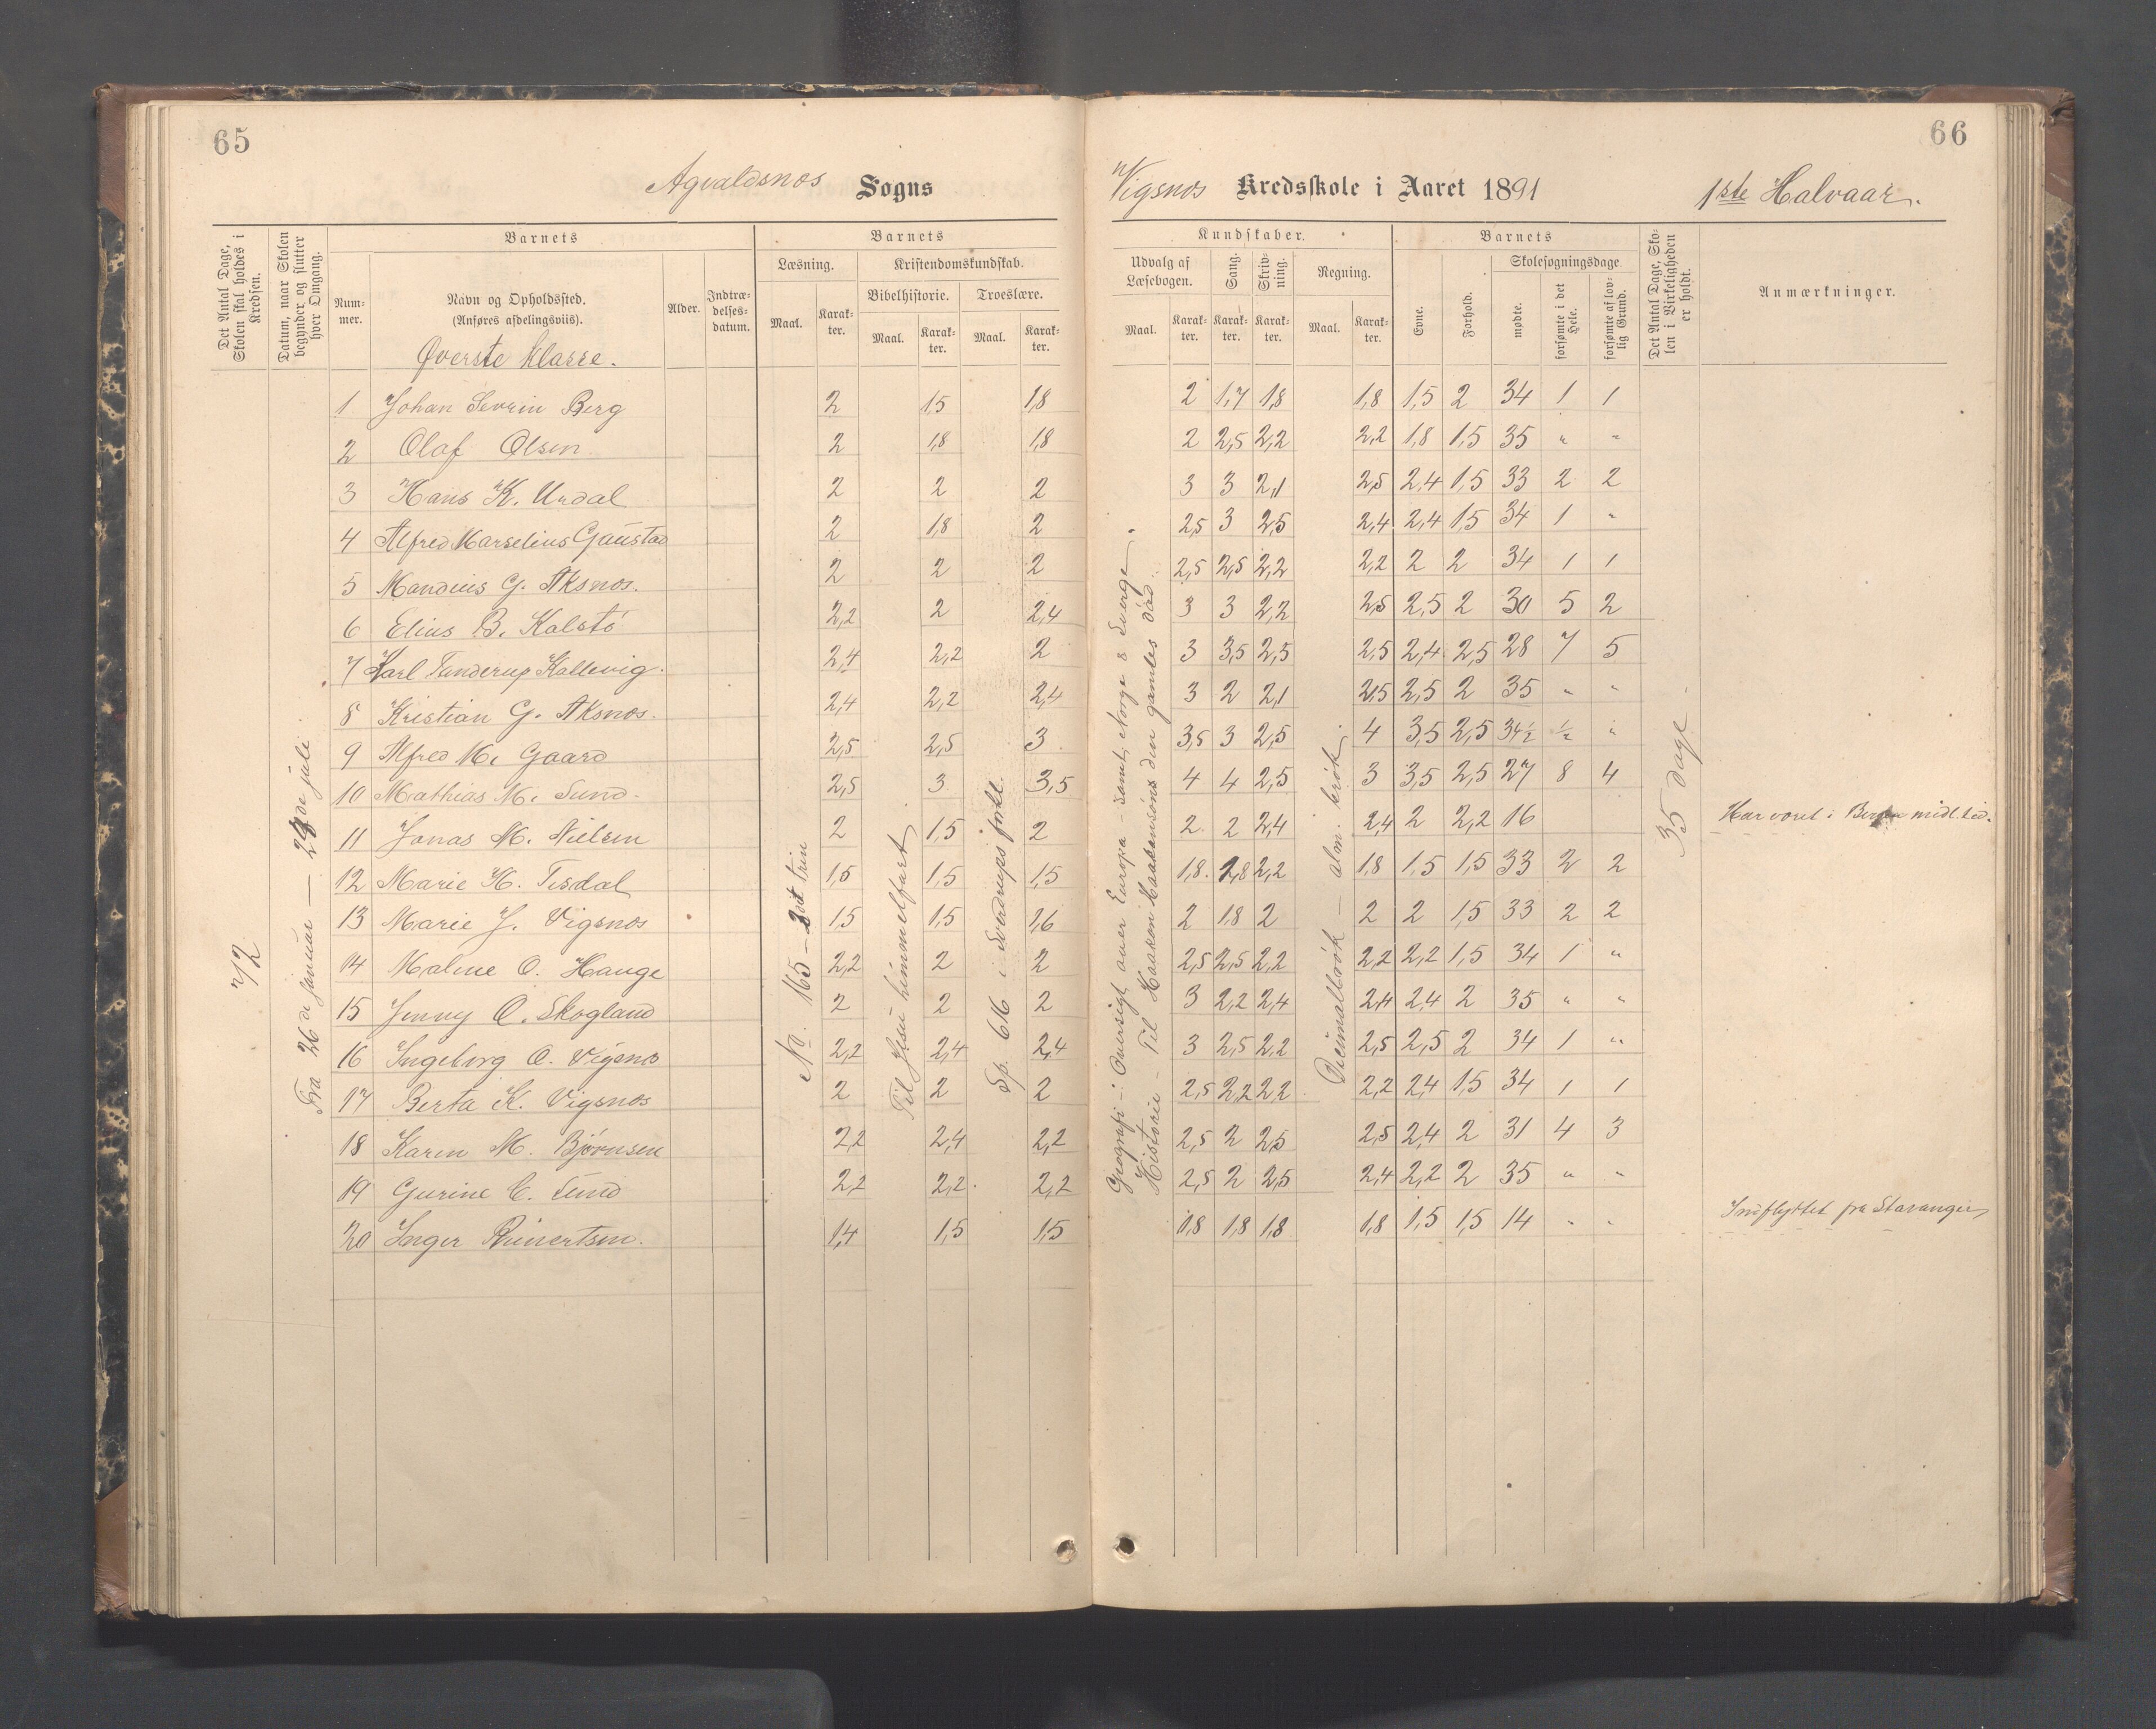 65
Agvaldsnes Sogns
Det Antal Dage, Skolen skal holdes i Kredsen.
Datum, naar Skolen begynder og slutter hver Omgang.
Barnets
Nummer.
Navn og Opholdssted.
(Anføres afdelingsviis).
Øverste Klasse.
Alder.
Indtrædelsesdatum.
Barnets
Læsning.
Maal.
Karakter.
Kristendomskundskab.
Bibelhistorie.
Maal.
Karakter.
Troeslære.
Maal.
Karakter.
72
Fra 26de januar — 24de juli
No. 165 – 3die trin
Til Jesu himmelfart
Sp. 616 i Sverdrups forkl.
1 Johan Sevrin Berg 2 1,5 1,8
2 Olaf Olsen 2 1,8 1,8
3 Hans K. Urdal 2 2 2
4 Alfred Marselius Gaustad 2 1,8 2
5 Mandius G. Aksnes. 2 2 2
6 Elius B. Kalstø 2,2 2 2,4
7 Karl Tanderup Kallevig. 2,4 2,2 2
8 Kristian G. Aksnes. 2,4 2,2 2,4
9 Alfred M. Gaard 2,5 2,5 3
10 Mathias M. Sund. 2,5 3 3,5
11 Jonas M. Nielsen 2 1,5 2
12 Marie H. Tisdal 1,5 1,5 1,5
13 Marie J. Vigsnes 1,5 1,5 1,6
14 Malene O. Hauge 2,2 2 2
15 Jenny O. Skogland 2 2 2
16 Ingeborg O. Vigsnes 2,2 2,4 2,4
17 Berta K. Vigsnes 2 2 2
18 Karen M. Bjørnsen 2,2 2,4 2,2
19 Gurine C. Sund 2,2 2,2 2,2
20 Inger Reinertsen. 1,4 1,5 1,5
66
Vigsnes Kredsskole i Aaret 1891
1ste Halvaar.
Kundskaber.
Udvalg af Læsebogen.
Maal.
Karakter.
Sang.
Karakter.
Skrivning.
Karakter.
Regning.
Maal.
Karakter.
Barnets
Evne.
Forhold.
Skolesøgningsdage.
mødte.
forsømte i det Hele.
forsømte af lovlig Grund.
Det Antal Dage, Skolen i Virkeligheden er holdt.
Anmærkninger.
Geografi –: Oversigt over Europa – samt, Norge & Sverige.
Historie – Til Haakon Haakonsøns den gamles død.
Decimalbrøk – alm. brøk.
35 dage
2 1,7 1,8 1,8 1,5 2 34 1 1
2 2,5 2,2 2,2 1,8 1,5 35 " "
3 3 2,1 2,5 2,4 1,5 33 2 2
2,5 3 2,5 2,4 2,4 1,5 34 1 "
2,5 2,5 2,2 2,2 2 2 34 1 1
3 3 2,2 2,5 2,5 2 30 5 2
3 3,5 2,5 2,5 2,4 2,5 28 7 5
3 2 2,1 2,5 2,5 2 35 " "
3,5 3 2,5 4 3,5 2,5 34½ ½ "
4 4 2,5 3 3,5 2,5 27 8 4
2 2 2,4 2,4 2 2,2 16 Har været i Bergen midl.tid.
1,8 1,8 2,2 1,8 1,5 1,5 33 2 2
2 1,8 2 2 2 1,5 33 2 2
2,5 2,5 2,2 2,2 2,2 1,5 34 1 "
3 2,2 2,4 2,4 2,4 2 35 " "
3 2,5 2,2 2,5 2,5 2 34 1 "
2,5 2,2 2,2 2,2 2,4 1,5 34 1 1
2,5 2 2,5 2,5 2,4 2 31 4 3
2,5 2 2,5 2,4 2,2 2 35 " "
1,8 1,8 1,8 1,8 1,5 1,5 14 " " Indflyttet fra Stavanger